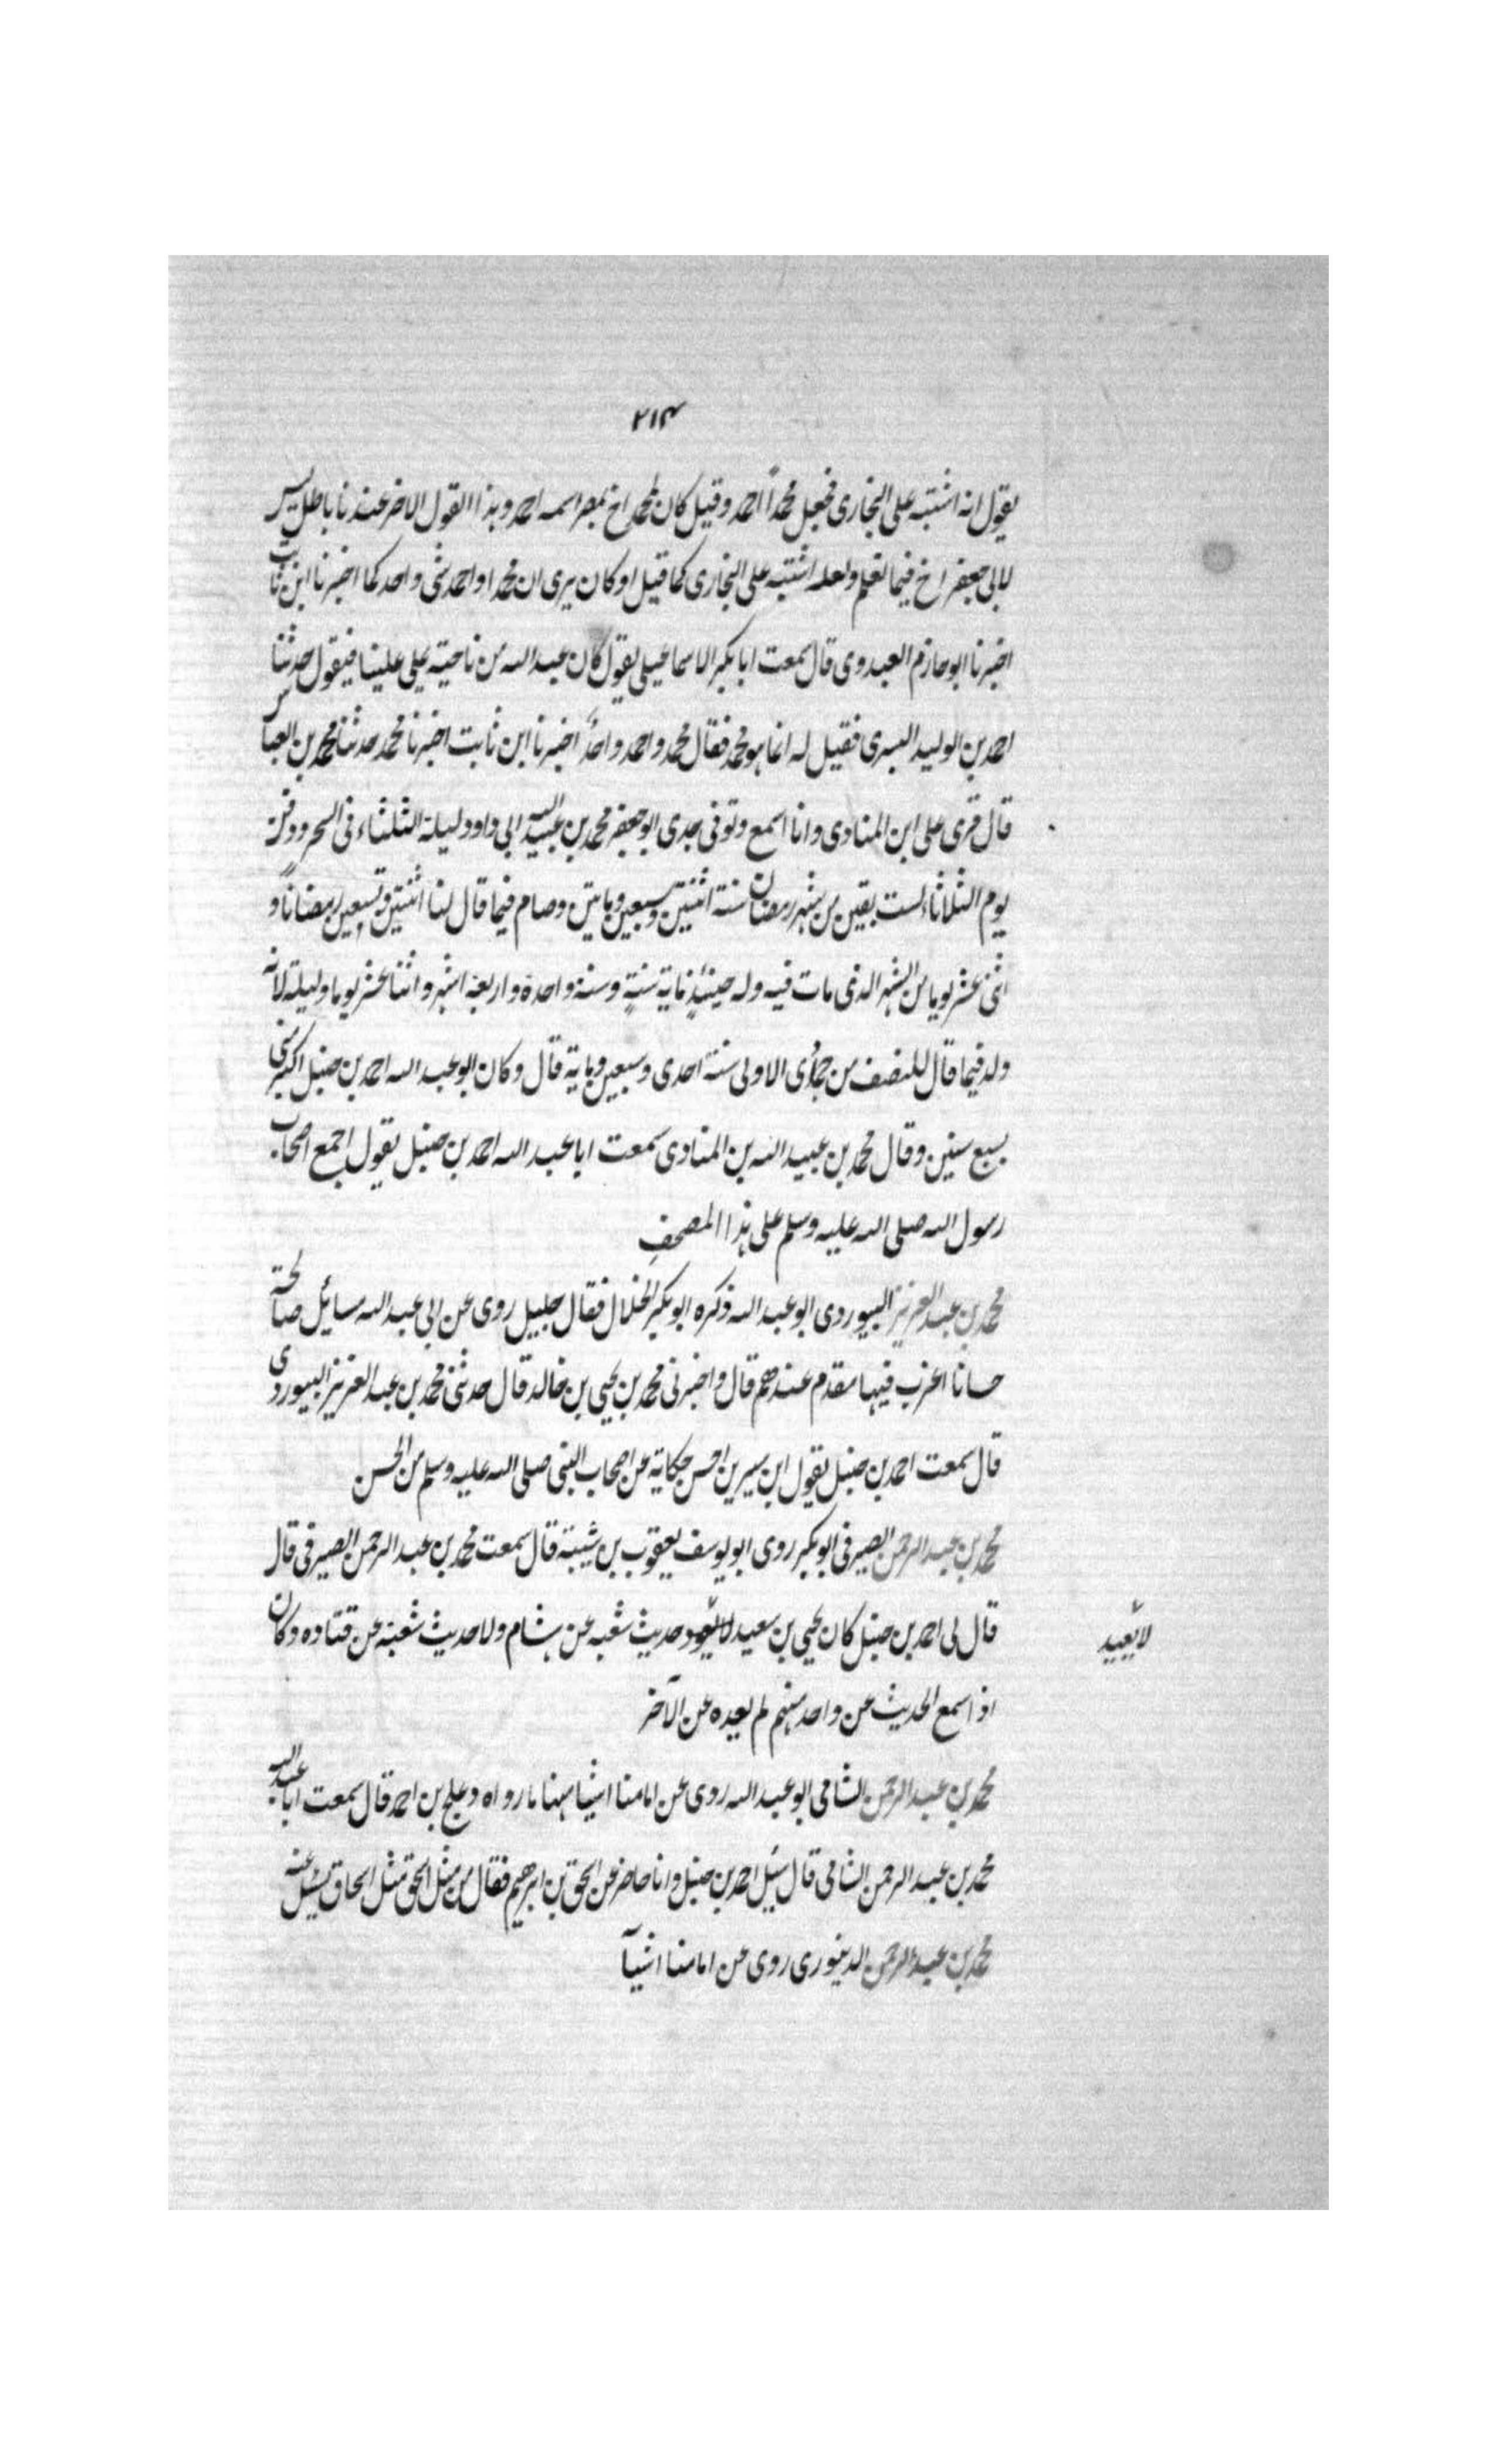 ٢١٤
يقول انه اشتبه على البخارى فجعل محمداً احمد وقيل كان لمحمد اخ بمصر اسمه احمد وهذا القول الاخر عندنا باطل ليس
لابى جعفر اخ فيما نعلم ولعله اشتبه على البخارى كما قيل او كان يرى ان محمدا واحمد شئ واحد كما اخبرنا ابن ثابت
اخبرنا ابو حازم العبدوى قال سمعت ابا بكر الاسماعيلى يقول كان عبد الله من ناحيته على علينا فيقول حدثنا
احمد بن الوليد البسرى فقيل له انما هو محمد فقال محمد واحمد واحدٌ اخبرنا ابن ثابت اخبرنا محمد حدثنا محمد بن العباس
قال قرى على ابن المنادى وانا اسمع وتوفى جدى ابو جعفر محمد بن عبيد الله ابى داود ليلة الثلثاء فى السحر ودفن
يوم الثلاثاء لست بقين من شهر رمضان سنة اثنتين وسبعين وماتين وصام فيما قال لنا اثنتين وتسعين رمضاناً و
اثنى عشر يوما من الشهر الذى مات فيه وله حينئذٍ ماية سنةٍ وسنة واحدة واربعة اشهر واثنا عشر يوما وليلة لانه
ولد فيما قال للنصف من جمادى الاولى سنة احدى وسبعين وماية قال وكان ابو عبد الله احمد بن حنبل اكبر منى
بسبع سنين وقال محمد بن عبيد الله بن المنادى سمعت ابا عبد الله احمد بن حنبل يقول اجمع اصحاب
رسول الله صلى الله عليه وسلم على هذا المصحف
محمد بن عبد العزيز البيوردى ابو عبد الله ذكره ابو بكر الخلال فقال جليل روى عن ابى عبد الله مسايل صالحة
حسانا اغرب فيها مقدم عندهم قال واخبرنى محمد بن يحيى بن خالد قال حدثنى محمد بن عبد العزيز البيوردى
قال سمعت احمد بن حنبل يقول ابن سيرين احسن حكاية عن اصحاب النبى صلى الله عليه وسلم من الحسن
محمد بن عبد الرحمن الصيرفى ابو بكر روى ابو يوسف يعقوب بن شيبة قال سمعت محمد بن عبد الرحمن الصيرفى قال
قال لى احمد بن حنبل كان يحيى بن سعيد لا يعود حديث شعبه عن هشام ولا حديث شعبة عن قتاده وكان
لا يعيد
اذا سمع الحديث عن واحد منهم لم يعيده عن الآخر
محمد بن عبد الرحمن الشامى ابو عبد الله روى عن امامنا اشيا منها ما رواه دعلج بن احمد قال سمعت ابا عبد الله
محمد بن عبد الرحمن الشامى قال سيل احمد بن حنبل وانا حاضر عن اسحق بن ابرهيم فقال من مثل اسحق مثل اسحاق يسئل عنه
محمد بن عبد الرحمن الدينورى روى عن امامنا اشيآ